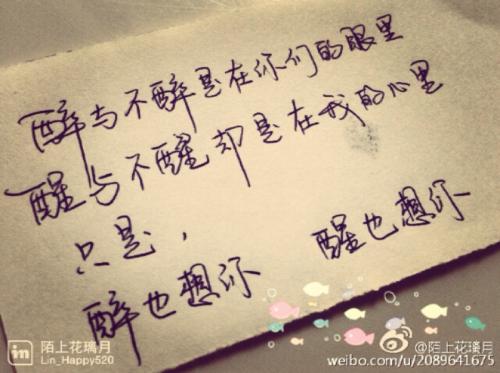 醉与不醉是在你们的眼里
醒与不醒却是在我的心里
只是，
醉也想你 醒也想你
in 陌上花璃月
Lin_Happy520
@陌上花璃月
weibo.com/u/2089641675